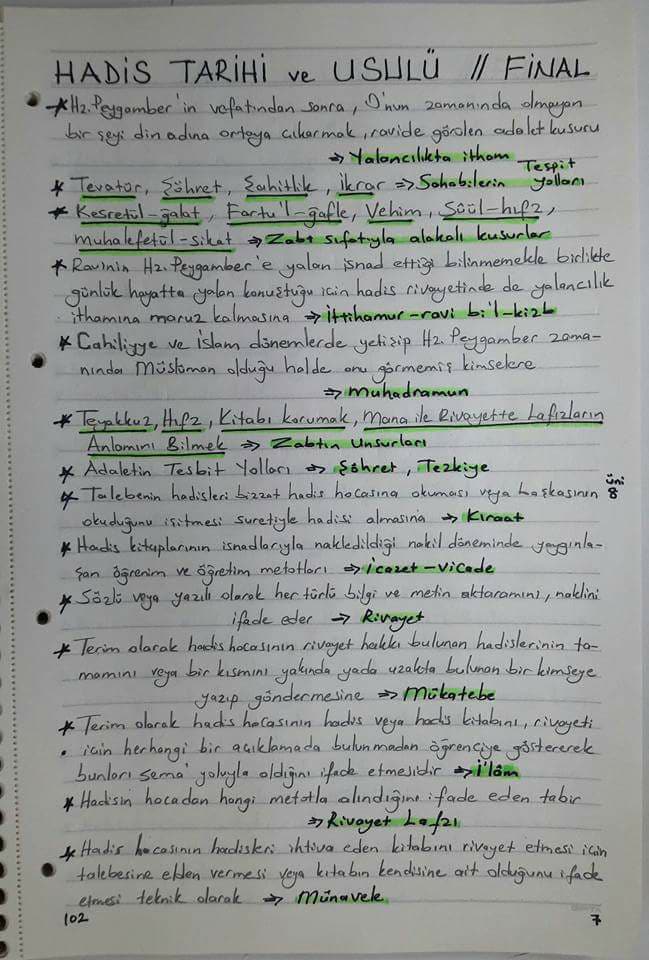 HADİS TARİHİ ve USULÜ // FİNAL
* Hz. Peygamber'in vefatından sonra, O'nun zamanında olmayan
bir şeyi din adına ortaya çıkarmak, ravide görülen adalet kusuru
⇒ Yalancılıkta itham
* Tevatür, Şöhret, Şahitlik, İkrar ⇒ Sahabilerin Tespit yolları
* Kesretül-ğalat, Fartu'l-ğafle, Vehim, Sûül-hıfz,
muhalefetül-sikat ⇒ Zabt sıfatıyla alakalı kusurlar
* Ravinin Hz. Peygamber'e yalan isnad ettiği bilinmemekle birlikte
günlük hayatta yalan konuştuğu için hadis rivayetinde de yalancılık
ithamına maruz kalmasına ⇒ İttihamur-ravi bi'l-kizb
* Cahiliyye ve İslam dönemlerde yetişip Hz. Peygamber zama-
nında Müslüman olduğu halde onu görmemiş kimselere
⇒ Muhadramun
* Teyakkuz, Hıfz, Kitabı korumak, Mana ile Rivayette Lafızların
Anlamını Bilmek ⇒ Zabtın Unsurları
* Adaletin Tesbit Yolları ⇒ Şöhret, Tezkiye
* Talebenin hadisleri bizzat hadis hocasına okuması veya başkasının
üni 8
okuduğunu işitmesi suretiyle hadisi almasına ⇒ Kıraat
* Hadis kitaplarının isnadlarıyla nakledildiği nakil döneminde yaygınla-
şan öğrenim ve öğretim metotları ⇒ İcazet-vicade
* Sözlü veya yazılı olarak her türlü bilgi ve metin aktaramını, naklini
ifade eder ⇒ Rivayet
* Terim olarak hadis hocasının rivayet hakkı bulunan hadislerinin ta-
mamını veya bir kısmını yakında yada uzakta bulunan bir kimseye
yazıp göndermesine ⇒ Mükatebe
* Terim olarak hadis hocasının hadis veya hadis kitabını, rivayeti
için herhangi bir açıklamada bulunmadan öğrenciye göstererek
bunları sema' yoluyla aldığını ifade etmesidir ⇒ İ'lâm
* Hadisin hocadan hangi metotla alındığını ifade eden tabir
⇒ Rivayet Lafzı
* Hadis hocasının hadisleri ihtiva eden kitabını rivayet etmesi için
talebesine elden vermesi veya kitabın kendisine ait olduğunu ifade
etmesi teknik olarak ⇒ Münavele
102
7